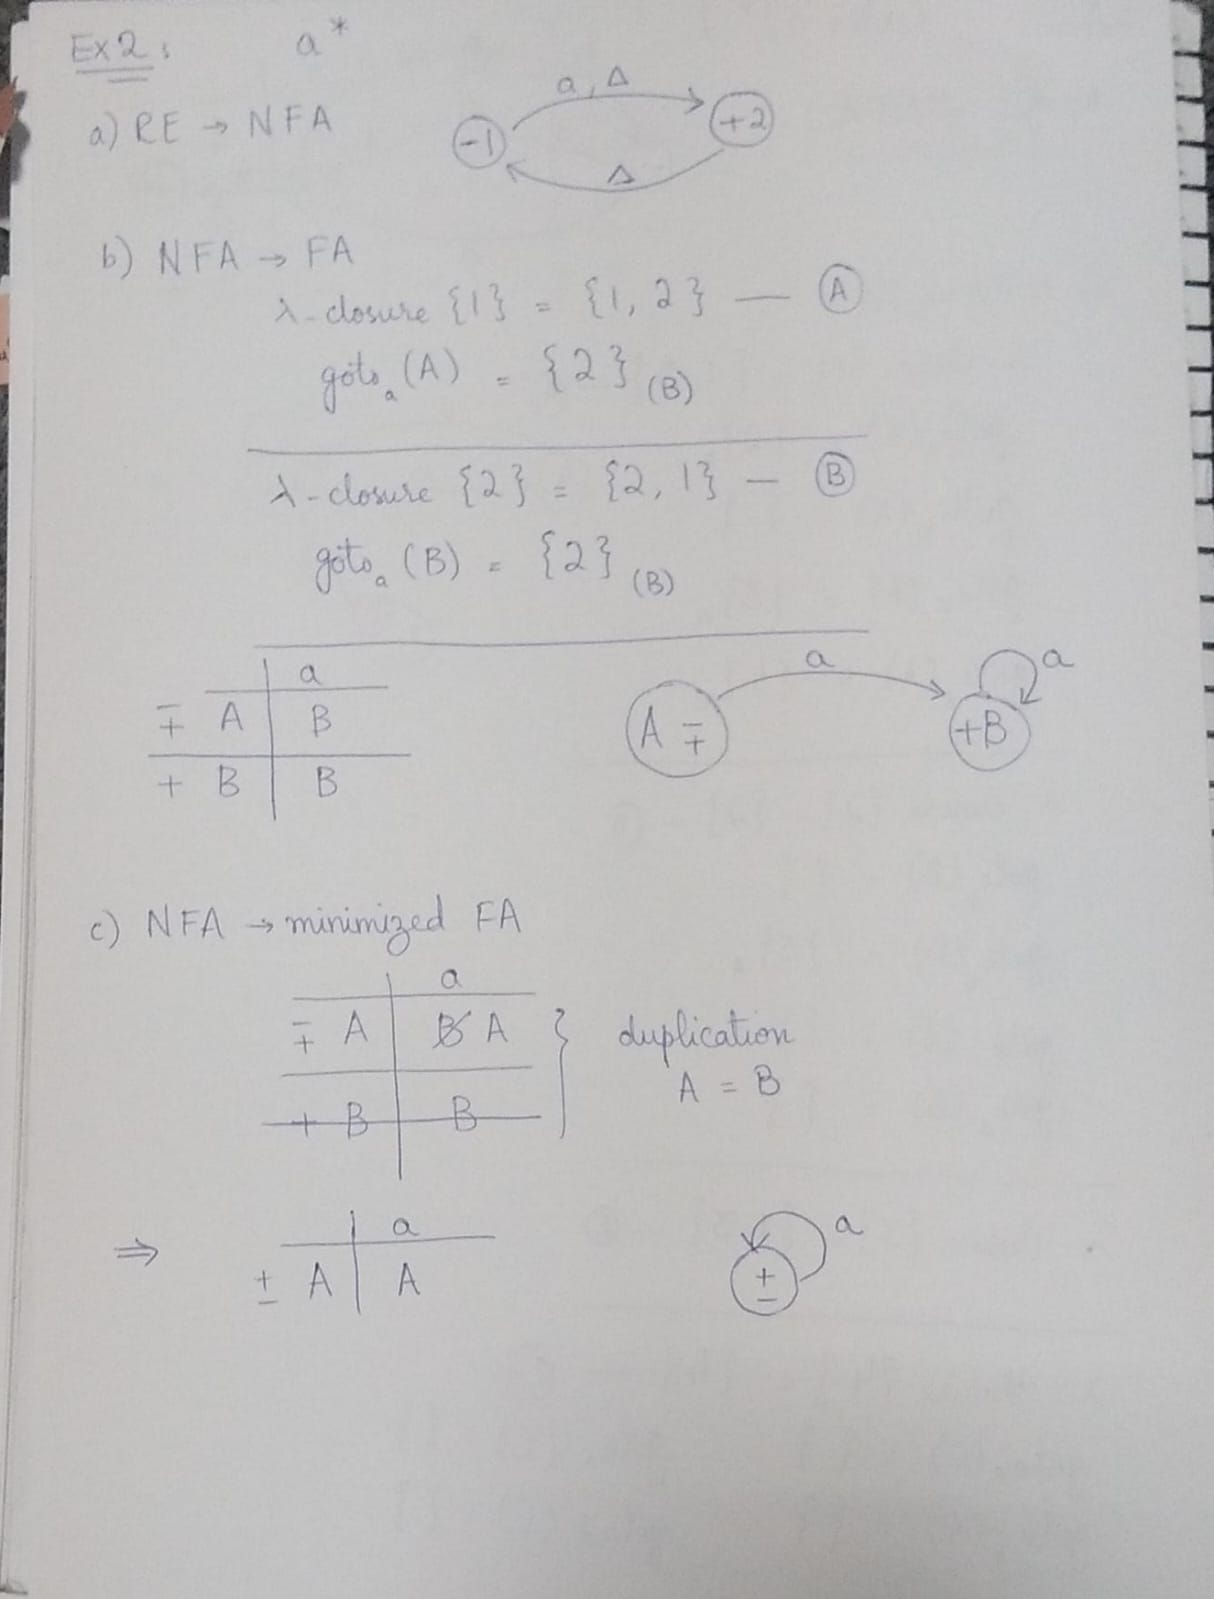 Ex 2: a*
a) RE → NFA
a, Δ
-1
+2
Δ
b) NFA → FA
λ-closure {1} = {1, 2} — A
goto a (A) = {2} (B)
λ-closure {2} = {2, 1} — B
goto a (B) = {2} (B)
a
∓ A B
+ B B
a
A ∓
+B
a
c) NFA → minimized FA
a
∓ A B A
+ B B
duplication
A = B
⇒
a
± A A
±
a